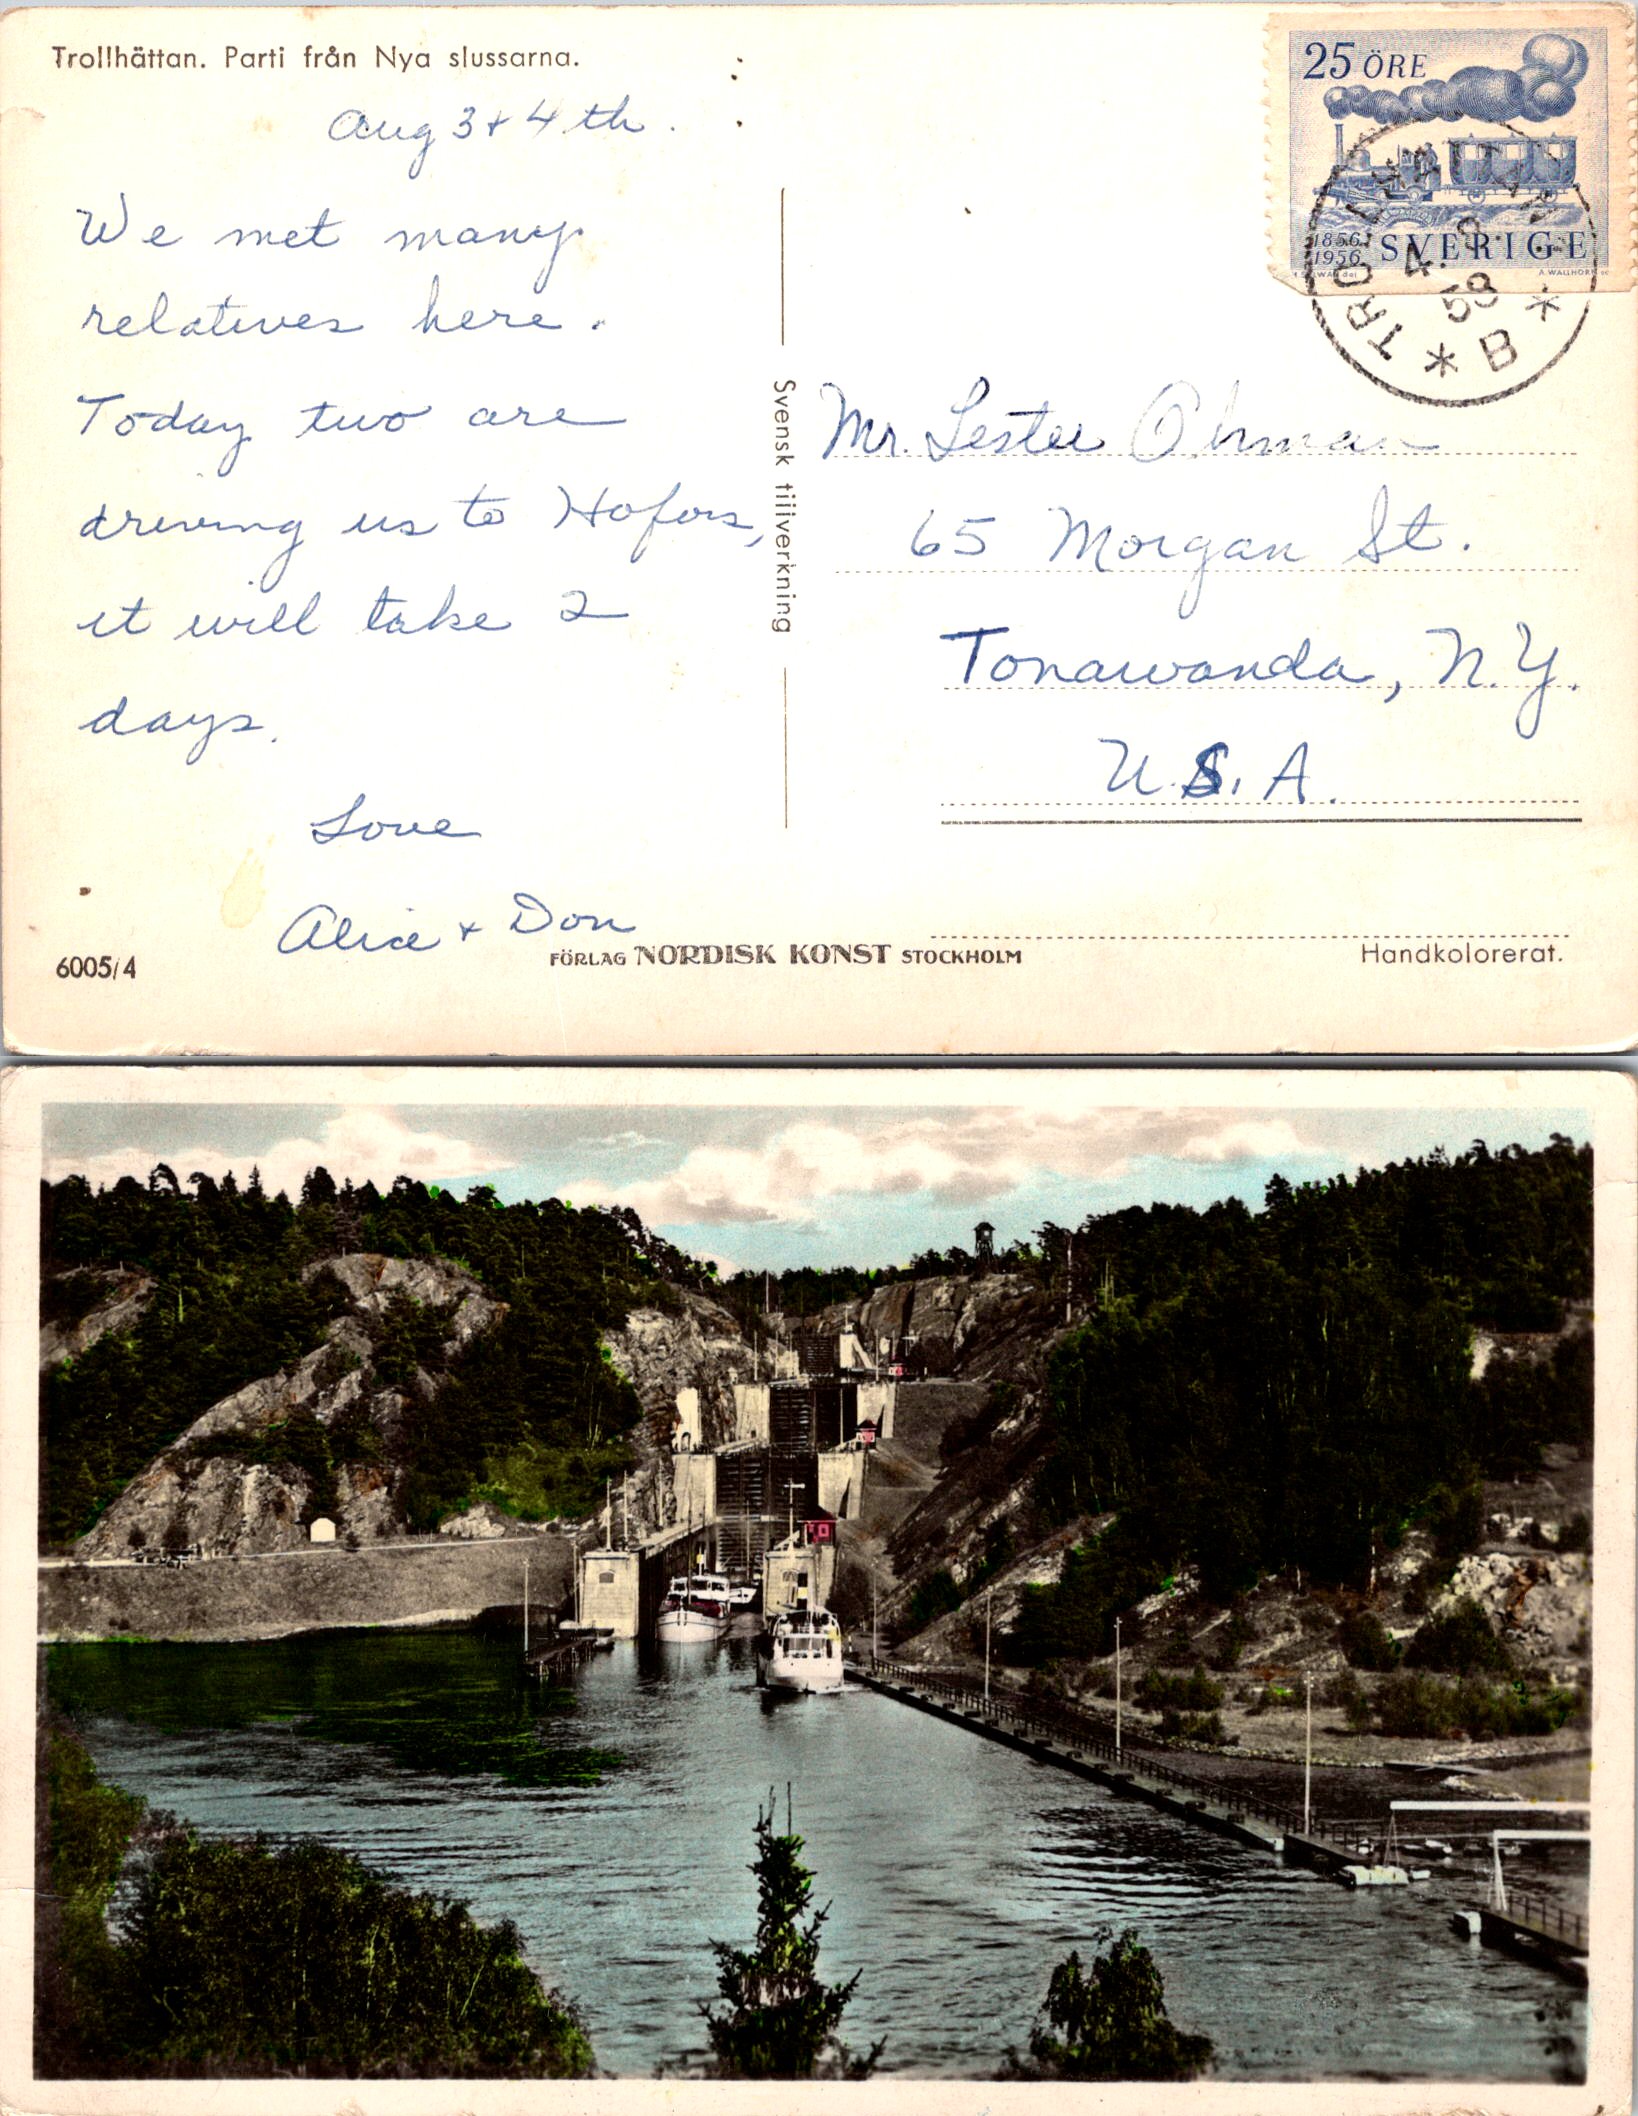 Trollhättan. Parti från Nya slussarna.
Aug 3 + 4 th.
We met many
relatives here.
Today two are
driving us to Hofors,
it will take 2
days.
Love
Alice + Don
6005/4
FÖRLAG NORDISK KONST STOCKHOLM
Svensk tillverkning
25 ÖRE
1856
1956
SVERIGE
A. WALLHORN sc
4. 8.
58
* B *
Mr. Lester Ohman
65 Morgan St.
Tonawanda, N.Y.
U.S.A.
Handkolorerat.